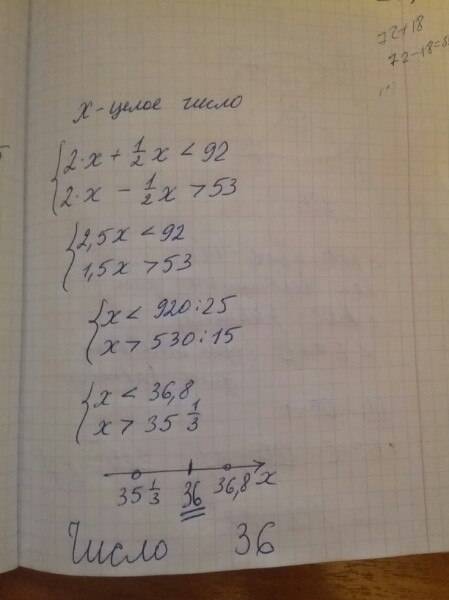 72+18
72-18=
x - целое число
2·x + 1/2 x < 92
2·x - 1/2 x > 53
2,5x < 92
1,5x > 53
x < 920:25
x > 530:15
x < 36,8
x > 35 1/3
35 1/3 36 36,8 x
Число 36